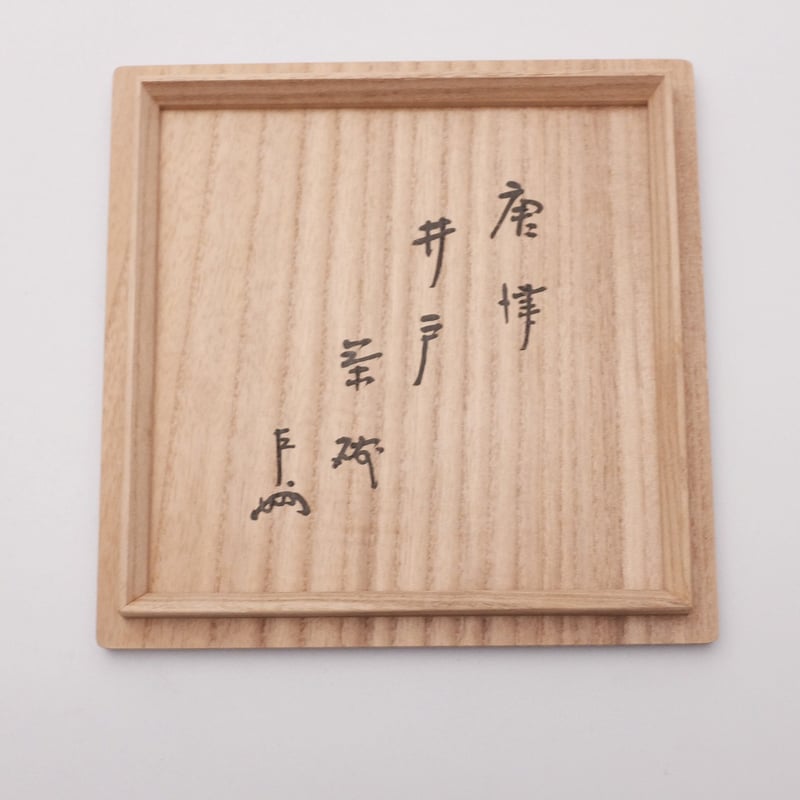 唐津
井戸
茶碗